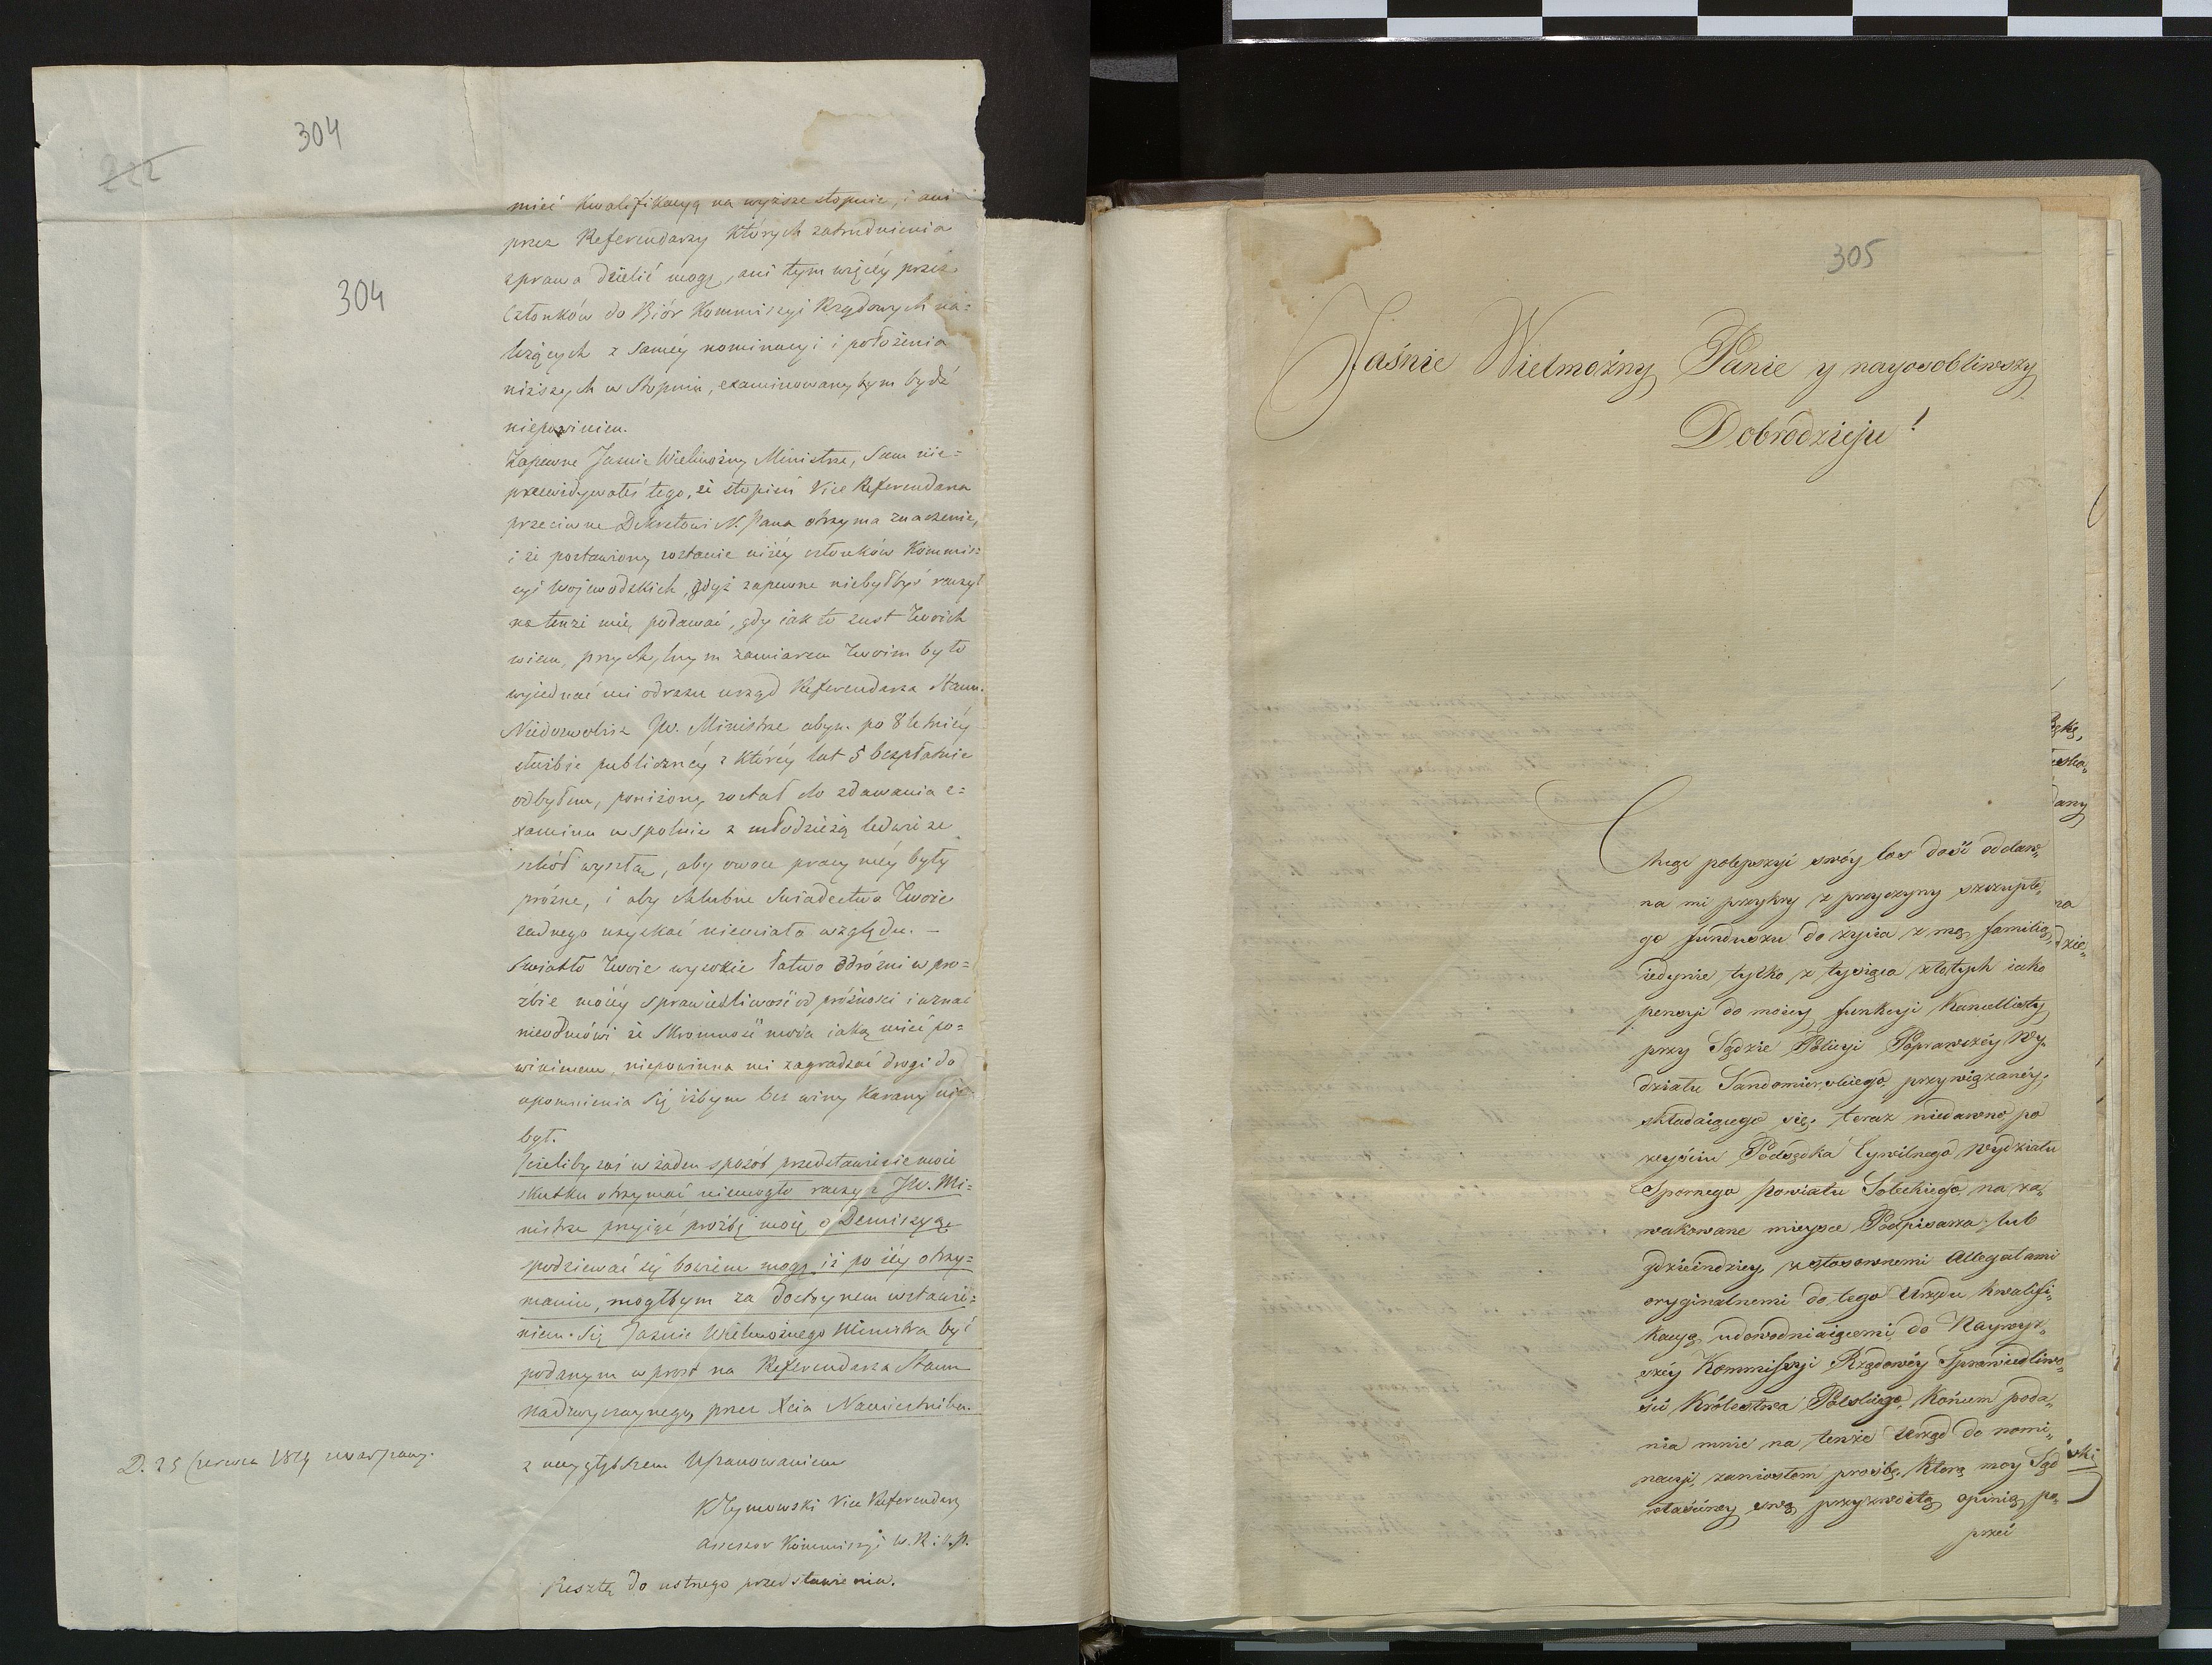 304
222
304
mieć kwalifikacyą na wyższe stopnie, i ani
przez Referendarzy których zatrudnienia
z prawa dzielić mogę, ani tym więcéy przez
Członków do Biór Kommissyi Rządowych na=
leżących z saméy nominacyi i położenia
niższych w stopniu, examinowanym bydź
niepowinien.
Zapewne Jaśnie Wielmożny Ministrze, sam nie=
przewidywałeś tego, że stopień Vice Referendarza
przeciwne Dekretowi N. Pana otrzyma znaczenie,
i że postawiony zostanie niżéy członków Kommis=
syi Wojewodzkich, gdyż zapewne niebyłbyś raczył
na tenże mię podawać, gdy iak to z ust Twoich
wiem, przychylnym zamiarem Twoim było
wyjednać mi odrazu urząd Referendarza Stanu.
Niedozwolisz JW. Ministrze abym po 8 letniéy
służbie publicznéy z któréy lat 5 bezpłatnie
odbyłem, poniżony został do zdawania e=
xaminu wspolnie z młodzieżą ledwie ze
szkół wyszłą, aby owoce pracy méy były
próżne, i aby chlubne świadectwa Twoie
żadnego uzyskać niemiały względu. —
Światło Twoie wysokie łatwo odróżni w pro=
źbie moiéy sprawiedliwość od próżności i uznać
nieodmówi że skromność moia iaką mieć po=
winienem, niepowinna mi zagradzać drogi do
upomnienia się iżbym bez winy karany nie
był.
Jeżeliby zaś w żaden sposób przedstawienie moie
skutku otrzymać niemogło raczysz JW. Mi=
nistrze przyiąć prożbę moię o Demissyą
spodziewać się bowiem mogę iż po iéy otrzy=
maniu, mogłbym za dobroczynnem wstawie=
niem się Jaśnie Wielmożnego Ministra być
podanym wprost na Referendarza Stanu
nadzwyczaynego, przez Xcia Namiestnika.
z naygłębszem Uszanowaniem
D. 25 Czerwca 1819 w Warszawie.
KTymowski Vice Referendarz
Assessor Kommissyi W. R. i O. P.
Resztę do ustnego przedstawienia.
305
Jaśnie Wielmożny Panie y nayosobliwszy
Dobrodzieju!
Chcąc polepszyć swóy los dość oddaw„
na mi przykry z przyczyny szczupłe„
go funduszu do życia z mą familią,
iedynie tylko z tysiąca złotych iako
pensyi do moiey funkcyi Kancellisty
przy Sądzie Policyi Poprawczéy Wy„
działu Sandomierskiego przywiązanéy,
składaiącego się, teraz niedawno po
zeyściu Podsędka Cywilnego Wydziału
Spornego powiatu Soleckiego, na za„
wakowane mieysce Podpisarza lub
gdzieindziey, z stosownemi Allegatami
oryginalnemi do tego Urzędu kwalifi„
kacyą udowodniaiącemi, do Naywyż„
széy Kommissyi Rządowéy Sprawiedliwo„
ści Królestwa Polskiego, końcem poda„
nia mnie na tenże Urząd do nomi„
nacyi, zaniosłem prośbę, którą moy Sąd
właściwy swą przyzwoitą opinią po„
przeć